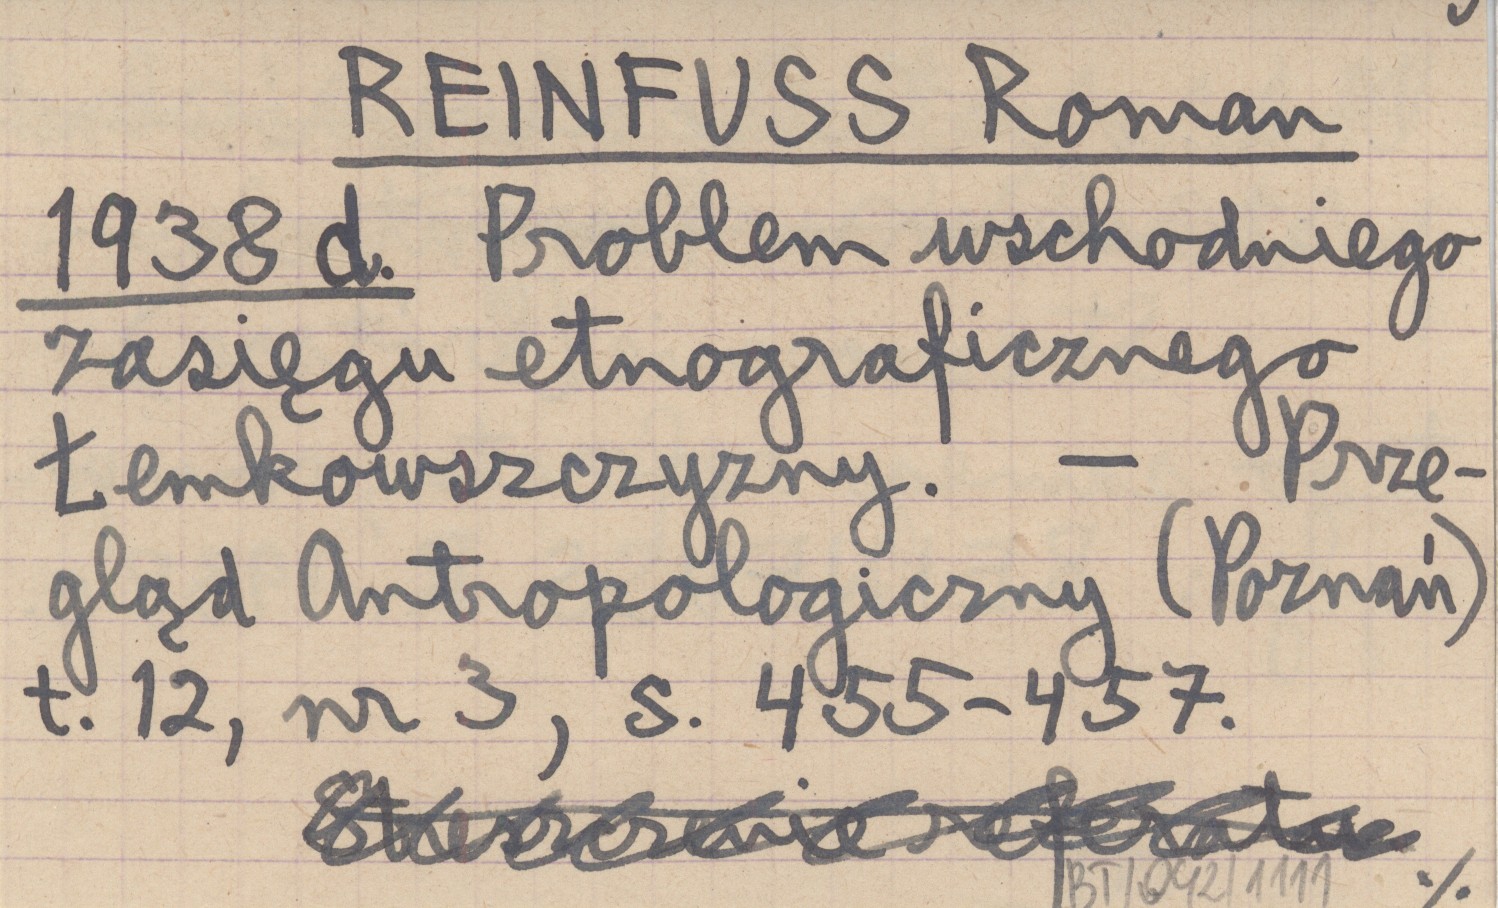 REINFUSS Roman
1938 d. Problem wschodniego
zasięgu etnograficznego
Łemkowszczyzny. – Prze-
gląd Antropologiczny (Poznań)
t. 12, nr 3, s. 455-457.
Streszczenie referatu
BT/092/1111 ./.